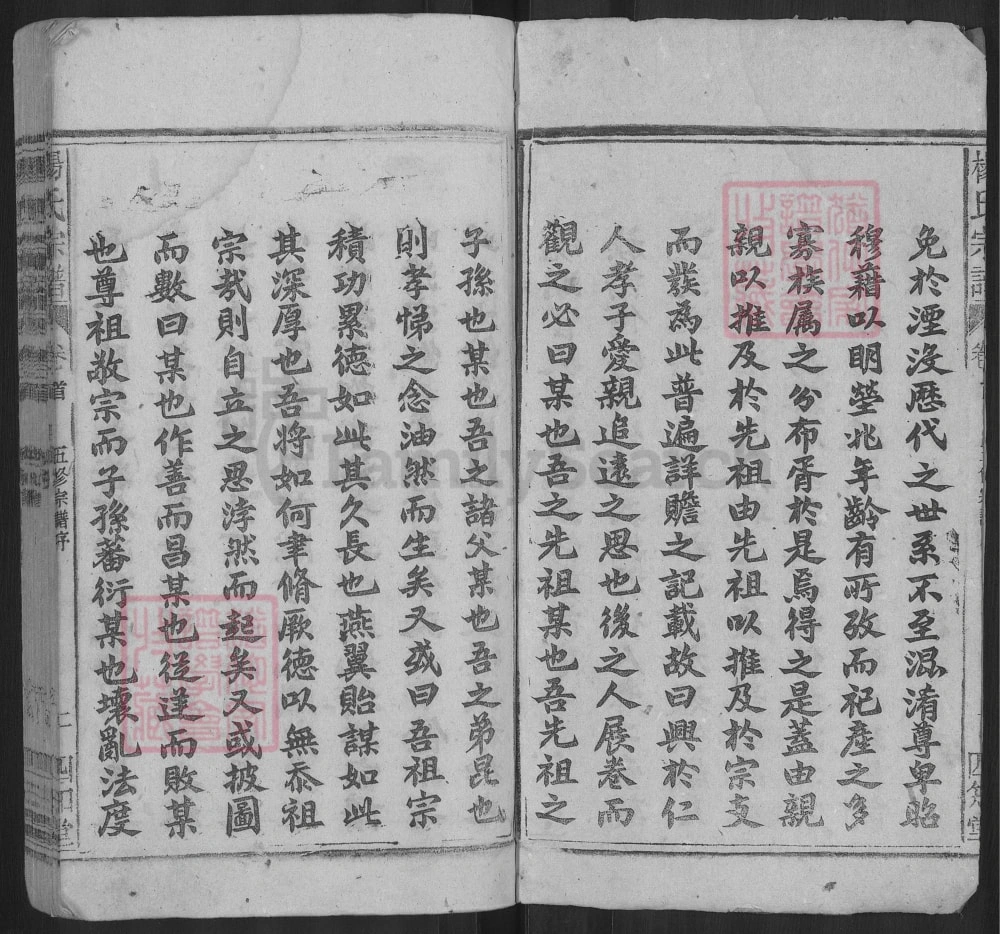 免於湮沒歷代之世系不至混淆尊卑昭
穆藉以明塋兆年齡有所攷而祀產之多
寡族属之分布胥於是焉得之是蓋由親
親以推及於先祖由先祖以推及於宗支
而發為此普遍詳贍之記載故曰興於仁
人孝子愛親追遠之思也後之人展卷而
觀之必曰某也吾之先祖某也吾先祖之
子孫也某也吾之諸父某也吾之弟昆也
則孝悌之念油然而生矣又或曰吾祖宗
積功累德如此其久長也燕翼貽謀如此
其深厚也吾將如何聿脩厥德以無忝祖
宗哉則自立之思浡然而起矣又或披圖
而數曰某也作善而昌某也從逆而敗某
也尊祖敬宗而子孫蕃衍某也壞亂法度
楊氏宗譜 卷首 五修宗譜序 四知堂
FamilySearch